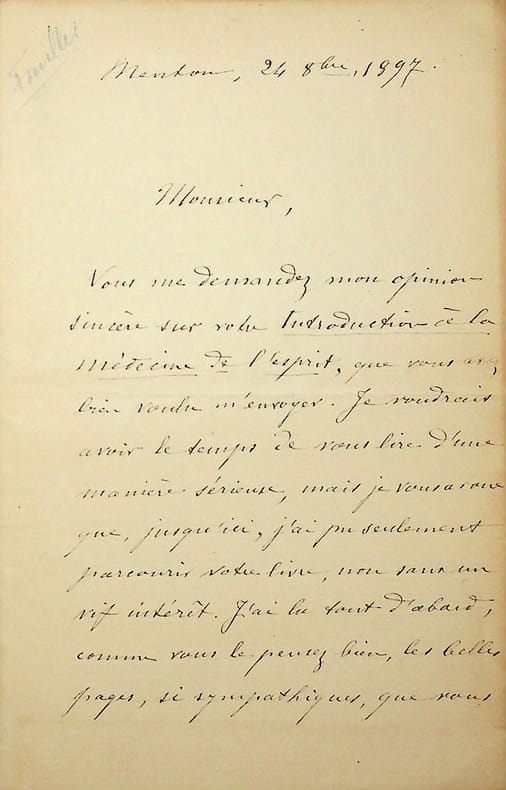 Fouillée
Menton, 24 8bre, 1897.
Monsieur,
Vous me demandez mon opinion
sincère sur votre Introduction à la
médecine de l'esprit, que vous avez
bien voulu m'envoyer. Je voudrais
avoir le temps de vous lire d'une
manière sérieuse, mais je vous avoue
que, jusqu'ici, j'ai pu seulement
parcourir votre livre, non sans un
vif intérêt. J'ai lu tout d'abord,
comme vous le pensez bien, les belles
pages, si sympathiques, que vous